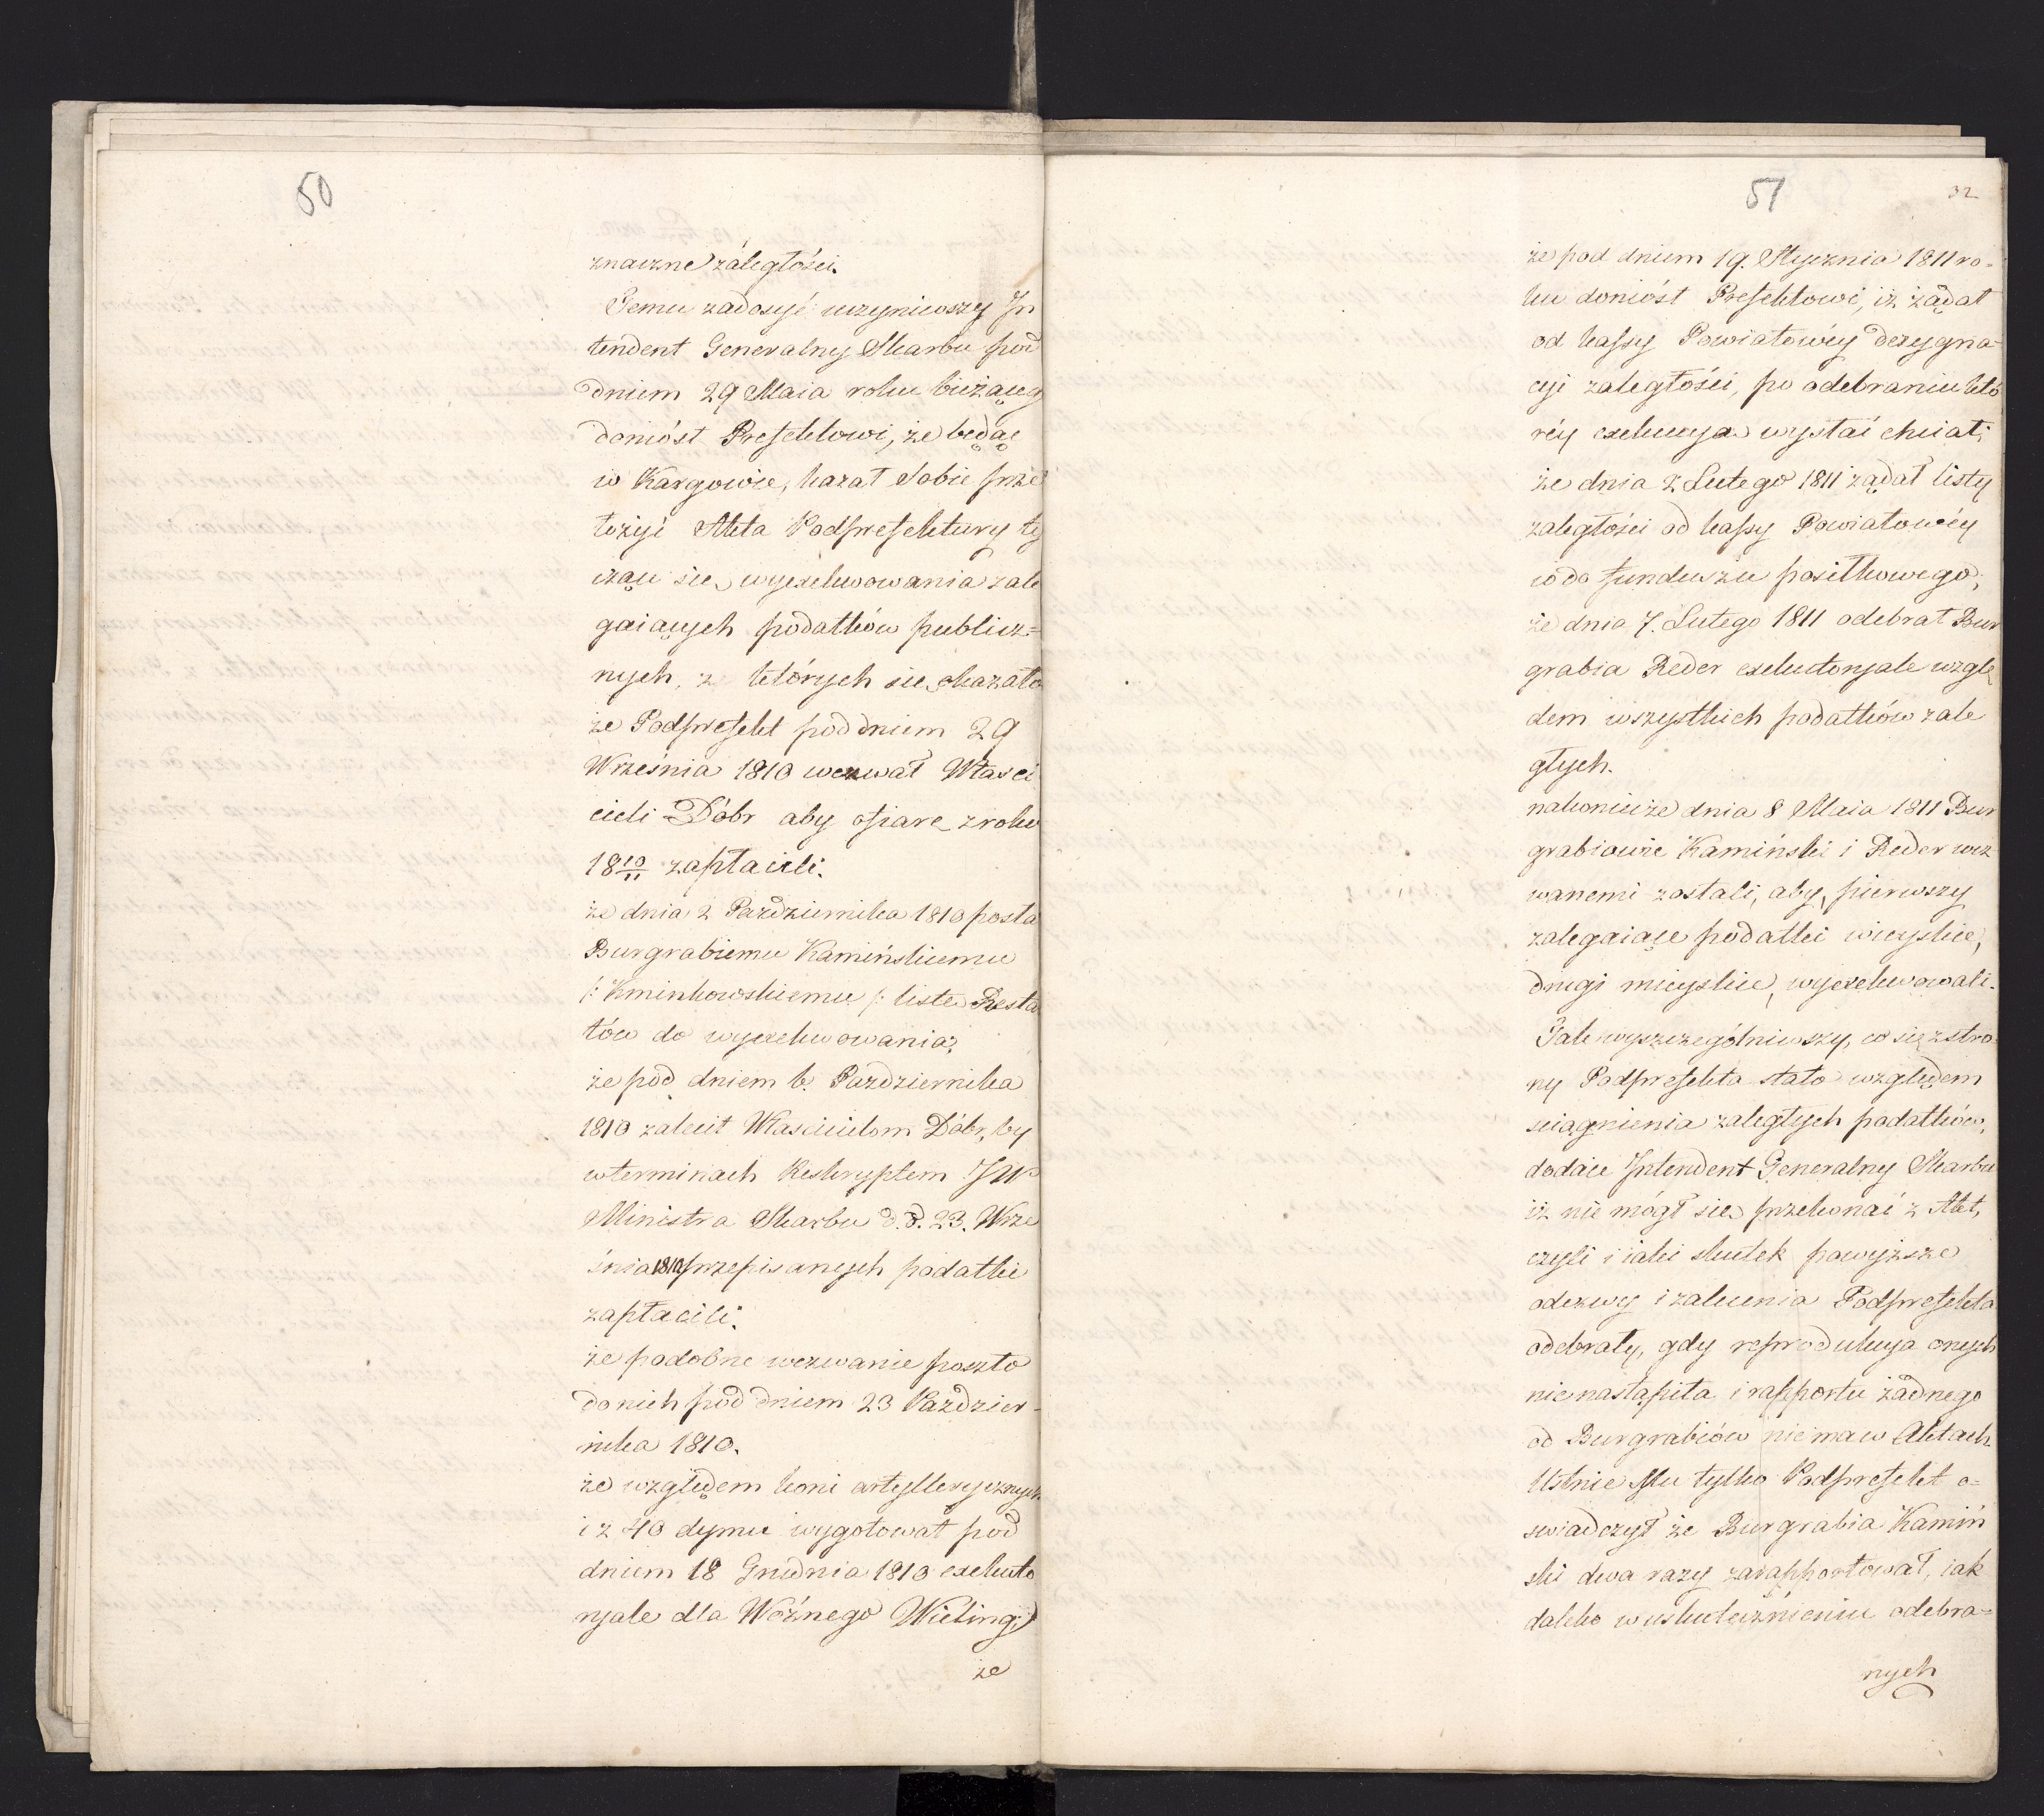 50
znaczne záległości.
Temu zadosyć uczyniwszy In
tendent Generalny Skarbu pod
dniem 29 Maia roku bieżąceg
doniósł Prefektowi, że będąc
w Kargowie, kazał Sobie prze
łożyć Akta Podprefektury ty
czące się wyexekwowania zale
gaiących podatków publicz=
nych, z których się okazało
że Podprefekt pod dniem 29
Września 1810 wezwał Właści
cieli Dóbr aby ofiarę z roku
18 10/11 zapłacili.
że dnia 2 Pazdziernika 1810 posła
Burgrabiemu Kamińskiemu
/: Kminkowskiemu /: listę Resta
tów do wyexekwowania;
że pod dniem 6. Pazdziernika
1810 zalecił Właścicielom Dóbr, by
w terminach Reskryptem JW
Ministra Skarbu d. d. 23. Wrze
śnia 1810 przepisanych podatki
zapłacili.
że podobne wezwanie poszło
do nich pod dniem 23 Pazdzier-
nika 1810.
że względem koni artyllerycznych
i z 40 dymu wygotował pod
dniem 18 Grudnia 1810 exekuto
ryale dla Woźnego Wieling;
że
51
32
że pod dniem 19. Stycznia 1811 ro-
ku doniósł Prefektowi, iż żądał
od kassy Powiatowéy dezygna=
cyi zaległości, po odebraniu któ
réy exekucyą wysłać chciał;
że dnia 2 Lutego 1811 żądał listy
zaległości od kassy Powiatowéy
co do funduszu posiłkowego;
że dnia 7. Lutego 1811 odebrał Bur
grabia Reder exekutoryale wzglę
dem wszystkich podatków zale
głych.
nakoniec że dnia 8 Maia 1811 Bur
grabiowie Kamiński i Reder wez
wanemi zostali, aby, pierwszy
zalegaiące podatki wieyskie,
drugi mieyskie, wyexekwowali.
Tak wyszczególniwszy, co się z stro=
ny Podprefekta stało względem
sciągnienia zaległych podatków,
dodaie Intendent Generalny Skarbu
iż nie mógł się przekonać z Akt,
czyli i iaki skutek powyższe
odezwy i zalecenia Podprefekta
odebrały, gdy reprodukcya onych
nie nastąpiła i rapportu żadnego
od Burgrabiów nie ma w Aktach.
Ustnie Mu tylko Podprefekt o=
swiadczył że Burgrabia Kamiń
ski dwa razy zarapportował, iak
daleko w uskutecznieniu odebra=
nych